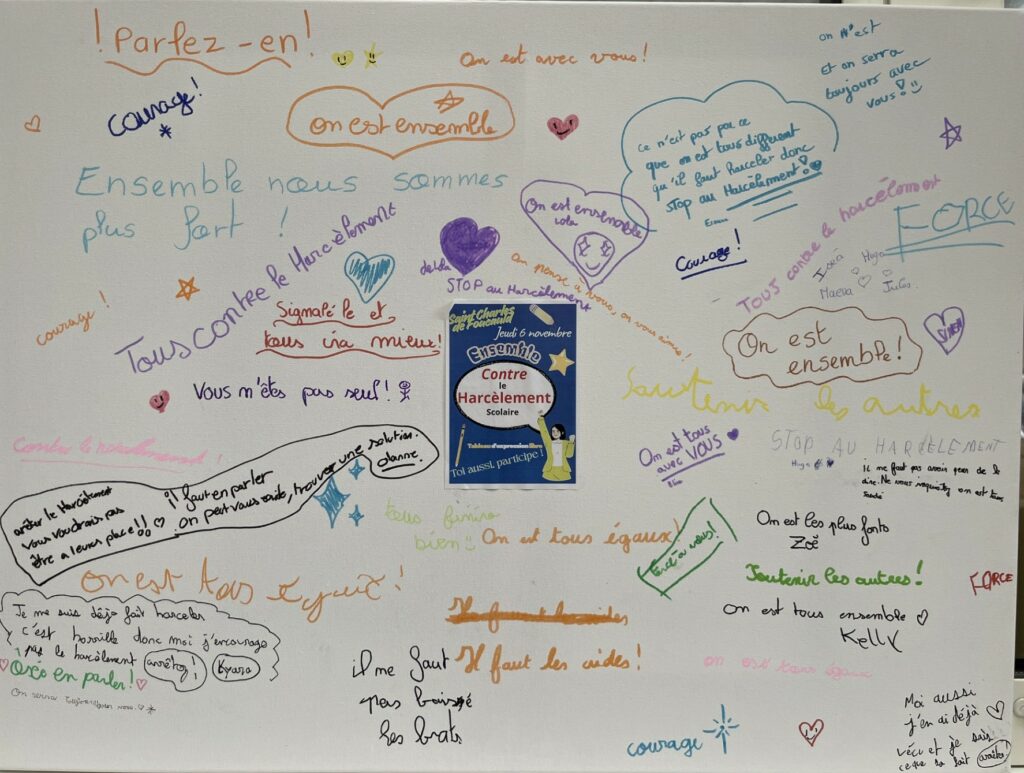 ! Parlez-en !
On est avec vous !
on n'est
Et on serra
toujours avec
vous !
courage !
on est ensemble
ce n'est pas par ce
que on est tous different
qu'il faut harceler donc
STOP au Harcèlement !
Ensemble nous sommes
plus fort !
On est ensemble
lola
Courage !
Tous contre le harcèlement
FORCE
Maëlla
Hugo
Jules
Tous contre le Harcèlement
de Lola
STOP au Harcèlement
on pense à vous, on vous aime !
courage !
Signalé le et
tous ira mieux !
On est
ensemble !
Vous n'êtes pas seul !
Saint Charles
de Foucauld
Jeudi 6 novembre
Ensemble
Contre
le
Harcèlement
Scolaire
Tableau d'expression libre
Toi aussi, participe !
Soutenir les autres
On est tous
avec VOUS
STOP AU HARCÈLEMENT
Hugo
il ne faut pas avoir peur de le
dire. Ne vous inquiétez on est tous
Contre le harcèlement !
arrêter le Harcèlement
vous voudriez pas
être a leurs place !!
il faut en parler
on peut vous aider, trouver une solution.
tous finira
bien
On est tous égaux !
On est les plus forts
Zoé
Soutenir les autres !
FORCE
on est tous ensemble
Kelly
on est tous égaux !
Je me suis déjà fait harceler
c'est horrible donc moi j'encourage
pas le harcèlement arrêtez !
Kyara
Osée en parler !
Il faut les aides
Il faut les aides !
il me faut
pas baissé
les brats
on est tous égaux
courage
Moi aussi
j'en ai déjà
vécu et je sais
ce que sa fait arrêtez !